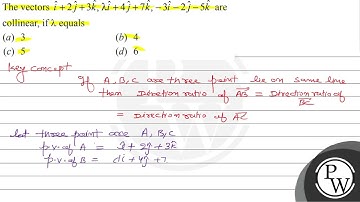 The vectors î + 2ĵ + 3k̂, λî + 4ĵ + 7k̂, −3î − 2ĵ − 5k̂ are
collinear, if λ equals
(a) 3 (b) 4
(c) 5 (d) 6
Key concept
If A, B, C are three point lie on same line
then Direction ratio of AB = Direction ratio of BC
= Direction ratio of AC
let three point are A, B, C
p.v. of A = î + 2ĵ + 3k̂
p.v. of B = λî + 4ĵ + 7
PW